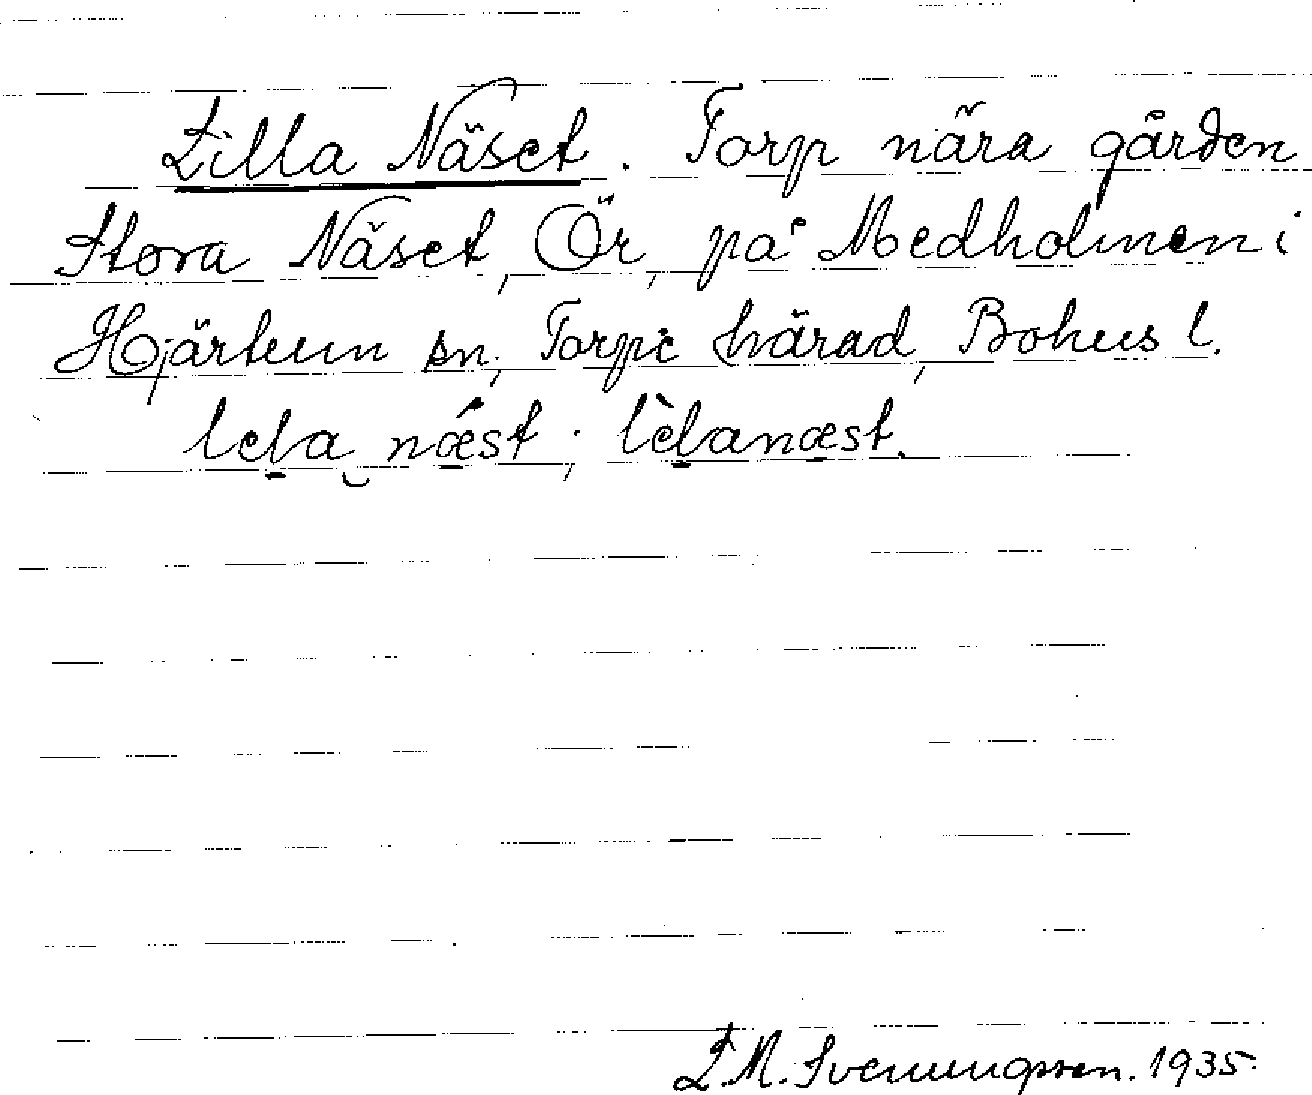 Lilla Näset. Torp nära gården
Stora Näset, Ör, på Medholmen i
Hjärtum sn, Torpe härad, Bohus l.
lela næst; lèlanæst.
L.M. Svenungsson. 1935.